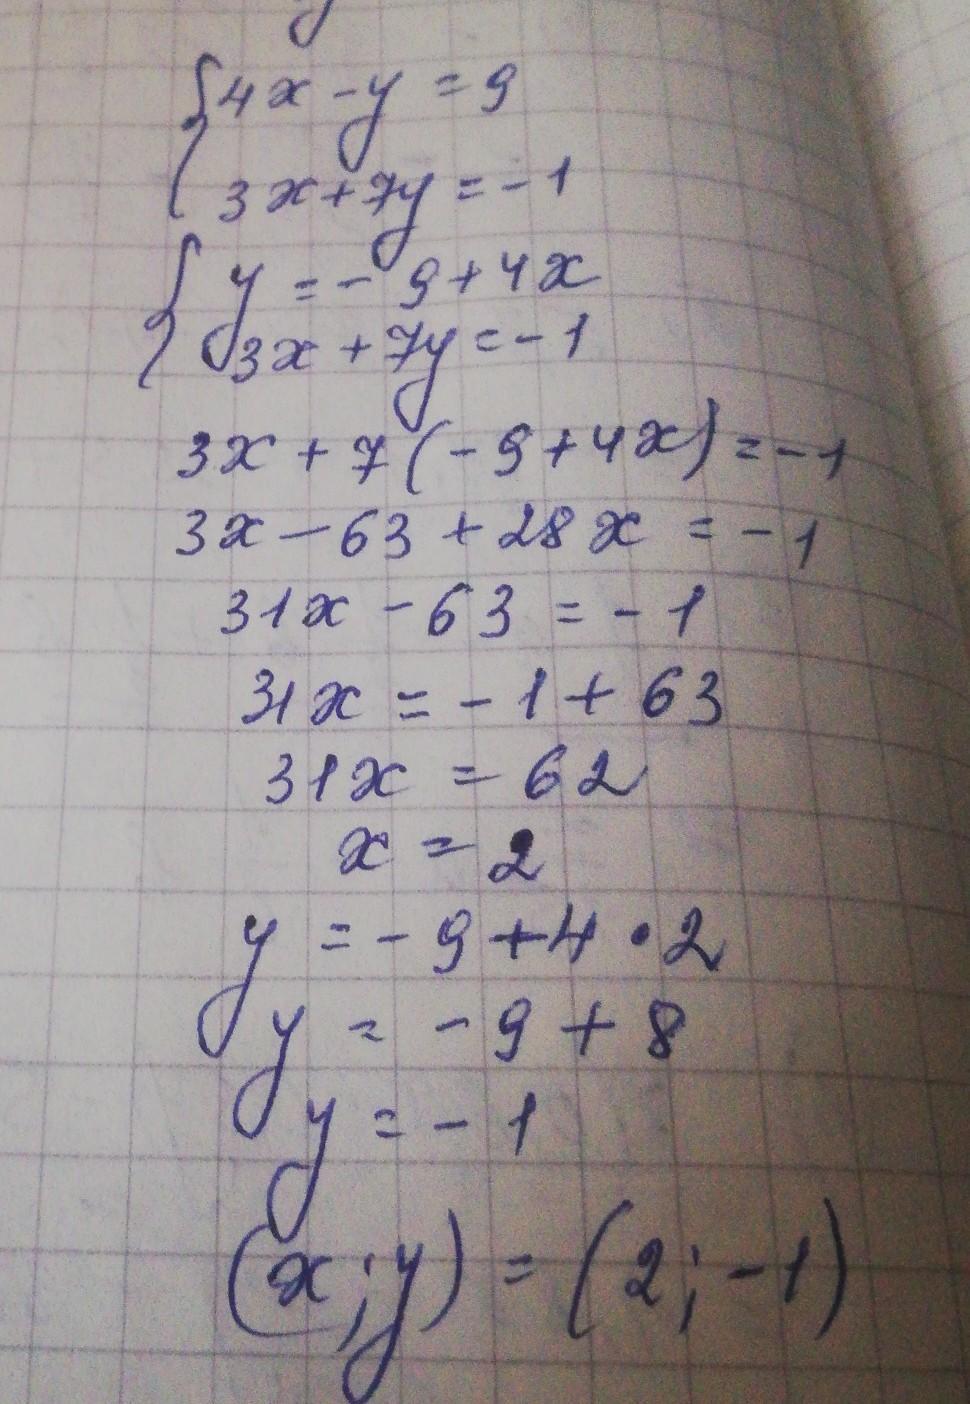 {4x - y = 9
3x + 7y = -1
{y = -9 + 4x
3x + 7y = -1
3x + 7(-9 + 4x) = -1
3x - 63 + 28x = -1
31x - 63 = -1
31x = -1 + 63
31x = 62
x = 2
y = -9 + 4 • 2
y = -9 + 8
y = -1
(x; y) = (2; -1)